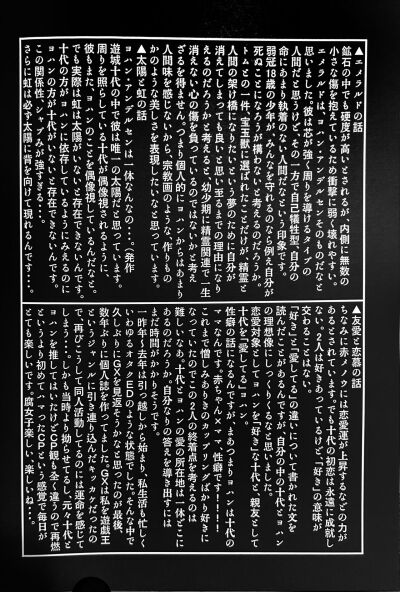 ▲エメラルドの話
鉱石の中でも硬度が高いとされるが、内側に無数の
小さな傷を抱えているため衝撃に弱く壊れやすい。
エメラルドは、ヨハン・アンデルセンそのものだなと
思いました。彼は芯が強く、周りを導けるタイプの
人間だと思うけど、その一方で自己犠牲型で自分の
命にあまり執着のない人間だなという印象です。
弱冠18歳の少年が、みんなを守れるなら例え自分が
死ぬことになろうが構わないと考えるのだろうか。
トムとの一件、宝玉獣に選ばれたことだけが、精霊と
人間の架け橋になりたいという夢のために自分が
消えてしまっても良いと思い至るまでの理由になり
えるのだろうかと考えると、幼少期に精霊関連で一生
消えない心の傷を負っているのではないかと考え
ざるを得ません。つまり個人的にヨハンからはあまり
人間味を感じないから、宗教画のような、作りもの
かのような美しさを表現したいなと思っています。
▲太陽と虹の話
ヨハン・アンデルセン一体なんなの…。（発作
遊城十代の中で彼は唯一の太陽だと思っています。
周りを照らしている十代が偶像視されるように、
彼もまた、ヨハンのことを偶像視しているんだなと。
でも実際は虹は太陽がいないと存在できないんです。
十代の方がヨハンに依存しているようにみえるのに
ヨハンの方が十代がいないと存在できないんです。
この関係性、ジャみが強すぎる…。
さらに虹は必ず太陽に背を向けて現れるんです…。
▲友愛と恋慕の話
ちなみに赤メノウには恋愛運が上昇するなどの力が
あるとされています。でも十代の初恋は永遠に成就し
ない。2人は好きあっているけど、「好き」の意味が
交わることはない。
「好き」と「愛」の違いについて書かれた文を
読んだことがあるんですが、自分の中の十代とヨハン
の理想像にしっくりくるなと思いました。
恋愛対象としてヨハンを「好き」な十代と、親友として
十代を「愛してる」ヨハン。
性癖の話になるんですが、まああつまりヨハンは十代の
ママなんです。赤ちゃん×ママ、性癖です！！！！
これまで憎しみありきのカップリングばかり好きに
なっていたのでこの2人の終着点を考えるのは
難しいなぁ、十代とヨハンの愛の所在地は一体どこに
あるのだろうか。自分なりの答えを導き出すには
まだ時間がかかりそうです。
一昨年〜去年は引っ越しから始まり、私生活も忙しく
いわゆるオタクEDのような状態でした。そんな中で
久しぶりにGXを見返そうかなと思ったのが最後、
数年ぶりに個人誌を作ってました。GXは私を遊戯王
というジャンルに引き連り込んだキッカケだったの
で、再びこうして同人活動してるのには運命を感じて
しまう…。しかも当時より拗らせてるし、元々十代と
ヨハンを推していたけどCP観も全く違うので再燃
というより初めてハマったCPという感覚で毎日が
とても楽しいです。腐女子楽しい、楽しいね…。